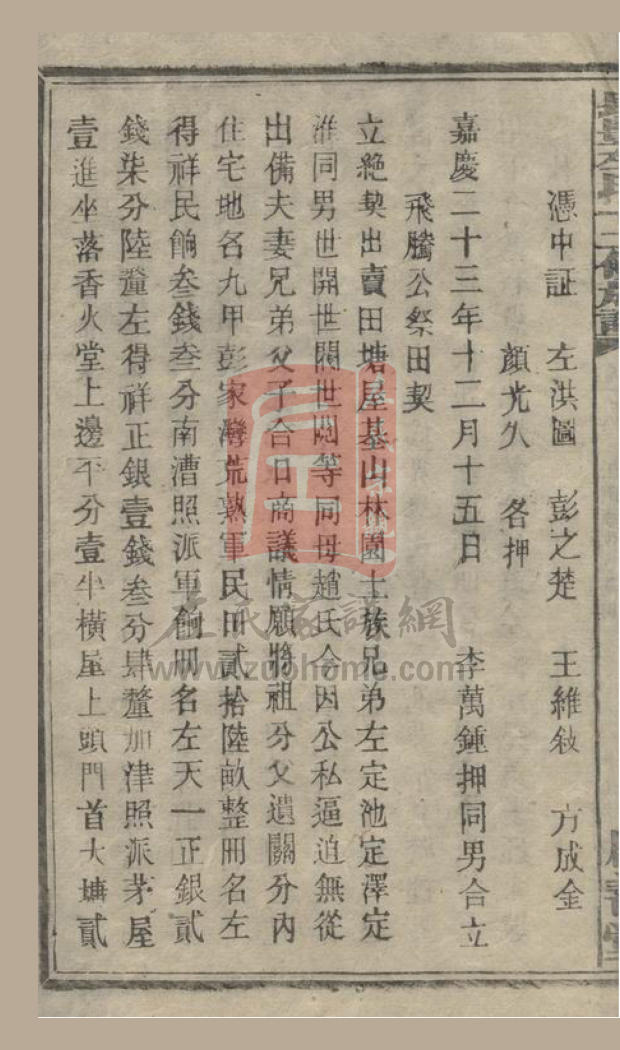 憑中証 左洪圖 彭之楚 王維敍 方成金
顏光久 各押
嘉慶二十三年十二月十五日 李萬鍾押同男合立
飛騰公祭田契
立絶契出賣田塘屋基山林園土族兄弟左定池定澤定
淮同男世開世閣世閲等同母趙氏今因公私逼迫無從
出備夫妻兄弟父子合口商議情願將祖分父遺鬮分內
住宅地名九甲彭家灣荒熟軍民田貳拾陸畝整冊名左
得祥民餉叁錢叁分南漕照派軍餉冊名左天一正銀貳
錢柒分陸釐左得祥正銀壹錢叁分肆釐加津照派茅屋
壹進坐落香火堂上邊平分壹半橫屋上頭門首大塘貳
左氏家譜網
www.zuohome.com